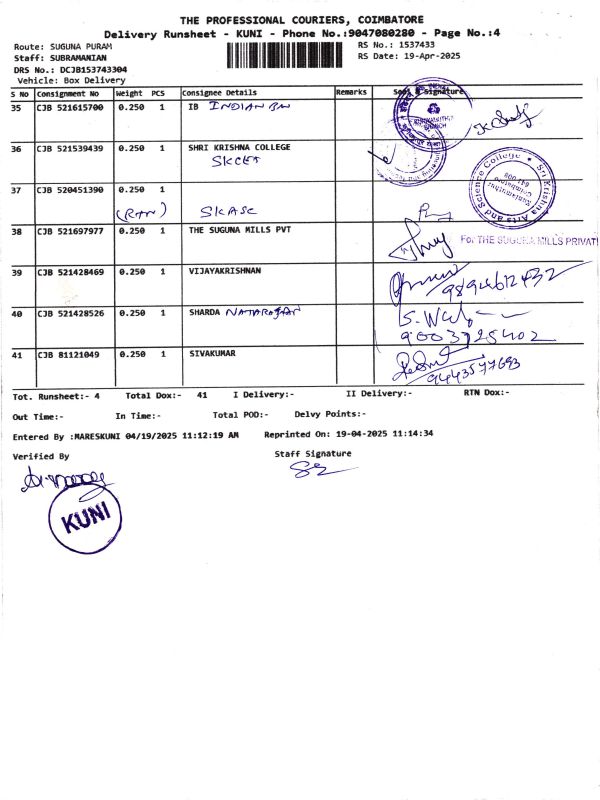 THE PROFESSIONAL COURIERS, COIMBATORE
Delivery Runsheet - KUNI - Phone No.:9047080280 - Page No.:4
Route: SUGUNA PURAM RS No.: 1537433
Staff: SUBRAMANIAN RS Date: 19-Apr-2025
DRS No.: DCJB153743304
Vehicle: Box Delivery
S No Consignment No Weight PCS Consignee Details Remarks Seal & Signature
35 CJB 521615700 0.250 1 IB INDIAN
36 CJB 521539439 0.250 1 SHRI KRISHNA COLLEGE
SKCET
Sri Krishna Arts and Science College
Kuniamuthur
Coimbatore
641 008
37 CJB 520451390 0.250 1
SKASC
38 CJB 521697977 0.250 1 THE SUGUNA MILLS PVT
For THE SUGUNA MILLS PRIVAT
39 CJB 521428469 0.250 1 VIJAYAKRISHNAN
9894612432
40 CJB 521428526 0.250 1 SHARDA NATARAJAN
9003725402
41 CJB 81121049 0.250 1 SIVAKUMAR
9443577693
Tot. Runsheet:- 4 Total Dox:- 41 I Delivery:- II Delivery:- RTN Dox:-
Out Time:- In Time:- Total POD:- Delvy Points:-
Entered By :MARESKUNI 04/19/2025 11:12:19 AM Reprinted On: 19-04-2025 11:14:34
Verified By Staff Signature
KUNI